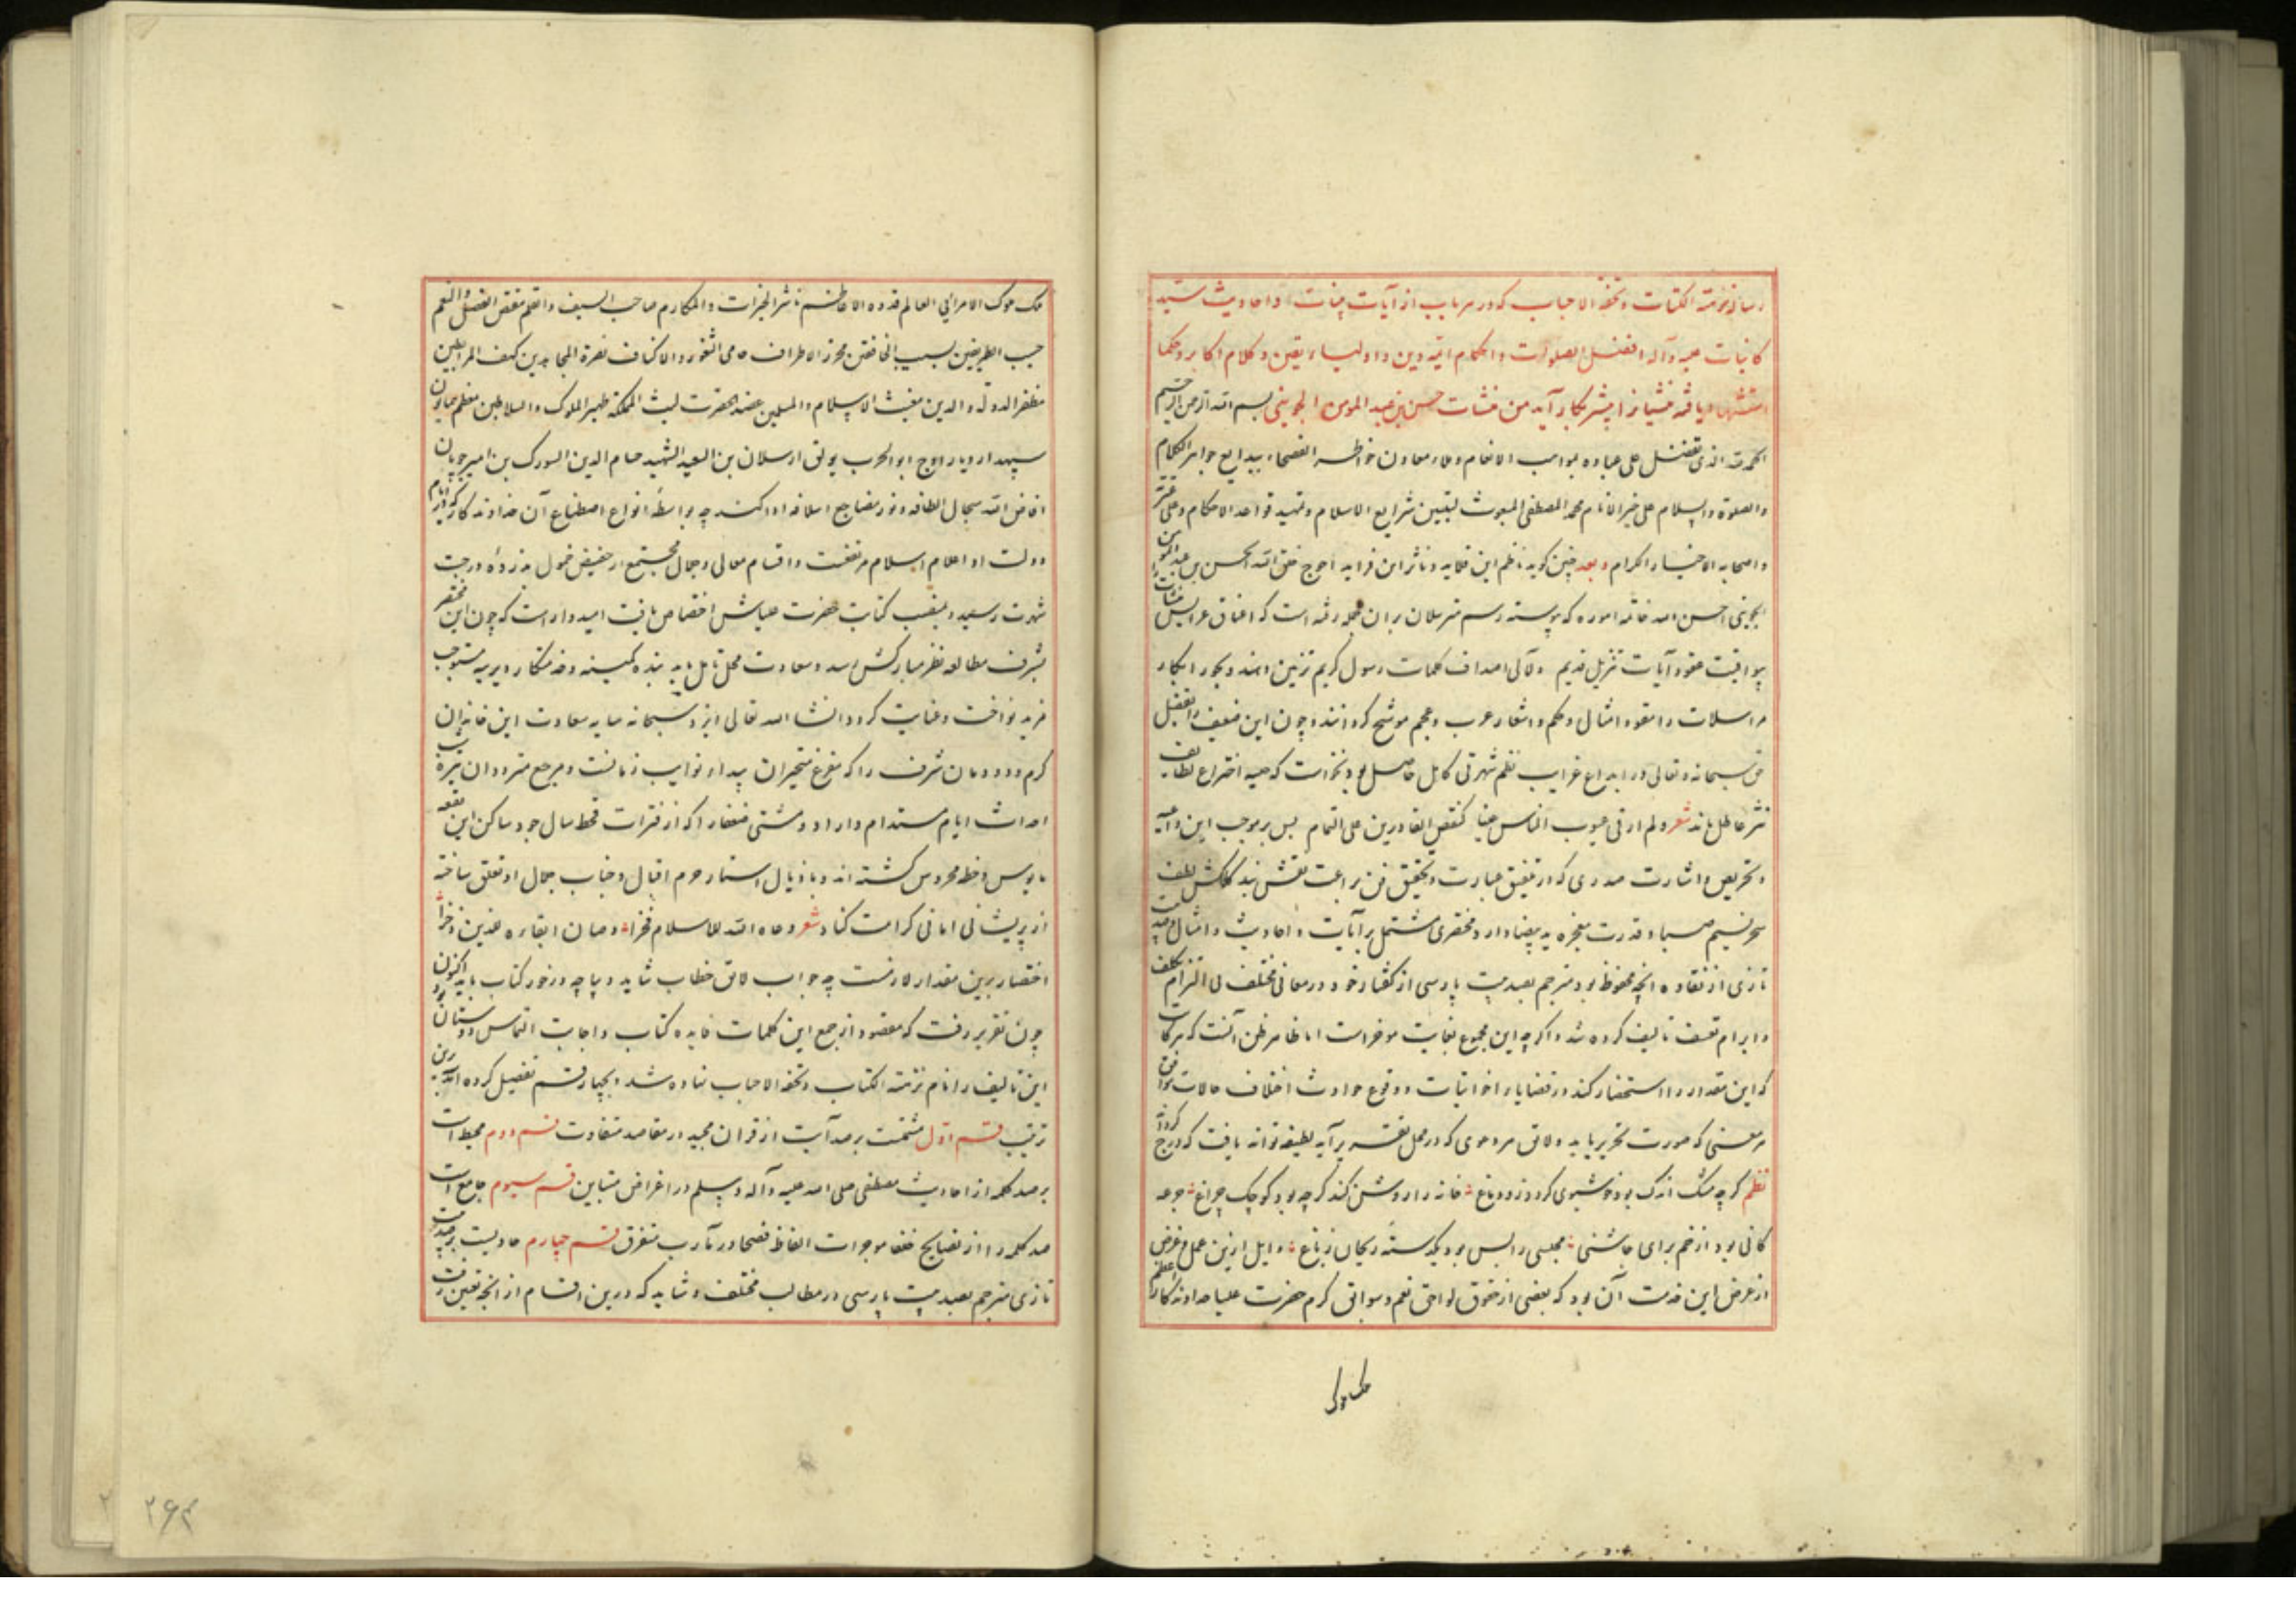 رساله نزهة الکتاب و تحفة الاحباب که در هر باب از آیات بینات و احادیث سید
کاینات علیه و آله افضل الصلوات و احکام ائمه دین و اولیاء یقین و کلام اکابر و حکما
استشهاد یافته منشیانرا بیشتر بکار آید من منشآت حسن بن عبد المومن الخویی بسم الله الرحمن الرحیم
الحمد لله الذی تفضل علی عباده بمواهب الانعام و ملاء معادن خواطر الفصحاء ببدایع جواهر الکلام
والصلوة والسلام علی خیر الانام محمد المصطفی المبعوث لتبیین شرایع الاسلام و تمهید قواعد الاحکام و علی عترته
و اصحابه الاخیار الکرام و بعد چنین گوید ناظم این قلاید و ناثر این فراید احوج خلق الله الحسن بن عبد المومن
الخویی احسن الله خاتمة اموره که پیوسته رسم مترسلان بران جمله رفته است که اعناق عرایس منشآت
بیواقیت عقود آیات تنزیل قدیم و لآلی اصداف کلمات رسول کریم تزیین دهند و نحور ابکار
مراسلات را بعقود امثال و حکم و اشعار عرب و عجم موشح گردانند و چون این ضعیف را بفضل
حق سبحانه و تعالی در ابداع غرایب نظم شهرتی کامل حاصل بود نخواست که جید اختراع لطایف
نثر عاطل ماند شعر ولم ار فی عیوب الناس عیبا کنقص القادرین علی التمام پس بر موجب این داعیه
و تحریض و اشارت صدری که در تنمیق عبارت و تحقیق فن براعت نقش بند کلکش لطف
سحر نسیم صبا و قدرت معجزه ید بیضا دارد مختصری مشتمل بر آیات و احادیث و امثال و صد بیت
تازی از نقاوه آنچه محفوظ بود مترجم بصد بیت پارسی از گفتار خود در معانی مختلف بی التزام تکلف
و ابرام تعسف تالیف کرده شد و اگر چه این مجموع بغایت موخراست اما ظاهر ظن آنست که هر کاتب
که این مقدار را استحضار کند در قضایا و اخوانیات و وقوع حوادث و اختلاف حالات موافق
هر معنی که صورت تحریر یابد و لایق هر دعوی که در محل تقریر آید لطیفه تواند یافت که درج کرداند
نظم گر چه مشک اندک بود خوشبوی گردد زو دماغ خانه را روشن کند گر چه بود کوچک چراغ جرعه
کافی بود از خم برای چاشنی مجلسی را بس بود یکدسته ریحان ز باغ و ایل ازین عمل و غرض
از عرض این خدمت آن بود که بعضی از حقوق لواحق نعم و سوابق کرم حضرت علیا خداوندگار اعظم
ملک ملوک
ملک ملوک الامرا فی العالم قدوه الاعاظم ناشر الخیرات و المکارم صاحب السیف و القلم مفیض الفضل و النعم
حسیب الطرفین نسیب الخافقین محرز الاطراف حامی الثغور و الاکناف نصرة المجاهدین کهف المرابطین
مظفر الدوله و الدین مغیث الاسلام و المسلمین عضد الحضرت لیث المملکة ظهیر الملوک و السلاطین معظم همایون
سپهدار دیار اوج ابو الحرب یولق ارسلان بن السعید الشهید حسام الدین البیورک بن امیر چوپان
افاض الله سجال الطافه و نور مضاجع اسلافه ادا کند چه بواسطهٔ انواع اصطناع آن خداوندگار که در ایام
دولت او اعلام اسلام مرتفعست و اقسام معالی و جمال مجتمع از حضیض خمول بذروهٔ درجت
شهرت رسید و بمنصب کتابت حضرت علیاش اختصاص یافت امیدوار است که چون این مختصر
بشرف مطالعه نظر مبارکش رسد و سعادت محل تامل یابد بنده کمینه و خدمتکار دیرینه مستوجب
مزید نواخت و عنایت گردد انشا الله تعالی ایزد سبحانه سایه سعادت این خاندان
کرم و دودمان شرف را که مفزع متحیران بیداد نوایب زمانست و مرجع مترددان تیره شب
احداث ایام مستدام داراد و مشتی ضعفا را که از فترات قحط سال جود ساکن این بقعه
مایوس و خط محروس گشته اند و باذیال استار حرم اقبال و جناب جمال او تعلق ساخته
از پریشانی امانی کرامت کناد شعر دعاه الله للاسلام فخرا و صان ابقاره للدین ذخرا
اختصار برین مقدار لازمست چه جواب لایق خطاب شاید و دیباچه در خور کتاب باید اکنون
چون تقریر رفت که مقصود از جمع این کلمات فایده کتاب و اجابت التماس دوستان بود
این تالیف را نام نزهة الکتاب و تحفة الاحباب نهاده شد و بچهار قسم تفصیل کرده آمد برین
ترتیب قسم اول متضمنست بر صد آیت از قرآن مجید در مقاصد متفاوت قسم دوم محیط است
بر صد کلمه از احادیث مصطفی صلی الله علیه و آله و سلم در اغراض متباین قسم سیوم جامع است
صد کلمه را از نصایح خلفا و موجزات الفاظ فصحا در مآرب متفرق قسم چهارم حاویست بر صد بیت
تازی مترجم بصد بیت پارسی در مطالب مختلف و شاید که درین اقسام از آنچه تعیین رفت
۲۶۴